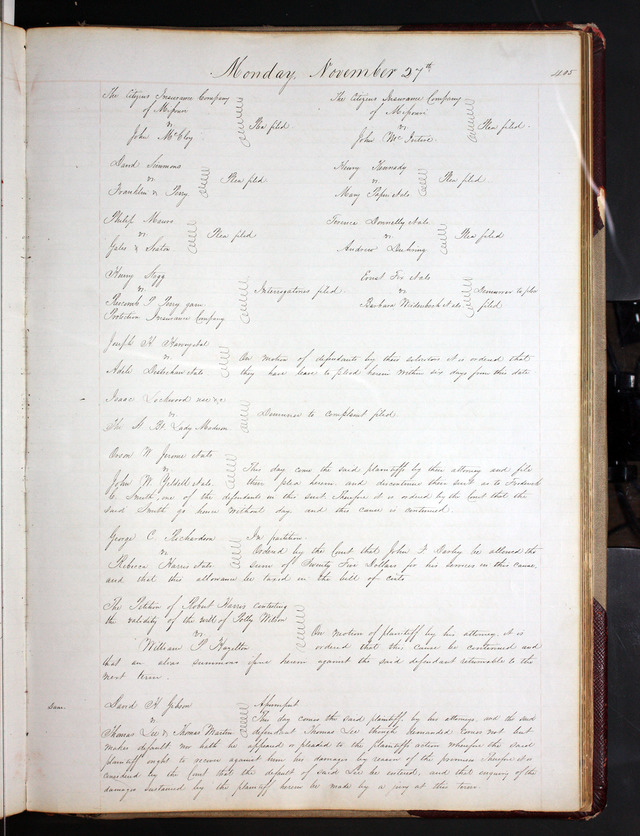 Monday, November 27th
405
The Citizens Insurance Company
of Missouri
vs
John McCloy
Plea filed
The Citizens Insurance Company
of Missouri
vs
John McIntire
Plea filed.
David Simmons
vs
Franklin & Perry
Plea filed
Henry Kennedy
vs
Mary Papin et als.
Plea filed.
Philip Mauro
vs
Gales & Seaton
Plea filed
Donnelly et als
vs
Andrew Duehring
Plea filed
Henry Stagg
vs
P. Perry garn.
Protection Insurance Company
Interrogatories filed.
Ernst Fix et als
vs
Barbara Weidenbach et als
Demurrer to plea
filed
Joseph H. et al
vs
Adele et als
On motion of defendants by their solicitors it is ordered that
they have leave to plead herein within six days from this date
Isaac Lockwood use &c
vs
The St. Bt. Lady Madison
Demurrer to complaint filed
Oscar W. Jerome et als
vs
John W. et als.
This day come the said plaintiffs by their attorney and file
their plea herein and discontinue their suit as to Frederick
C. Smith, one of the defendants in this suit. Therefore it is ordered by the Court that the
said Smith go hence without day and this cause is continued.
George C. Richardson
vs
Rebecca Harris et als
In partition.
Ordered by the Court that John F. Darby be allowed the
sum of Twenty Five Dollars for his services in this cause,
and that this allowance be taxed in the bill of costs.
The Petition of Robert Harris contesting
the validity of the will of Polly Wilton
vs
William P. Hazelton
On motion of plaintiff by his attorney, it is
ordered that this cause be continued and
that an alias summons issue herein against the said defendant returnable to the
next term.
David H. Gibson
vs
Thomas Lee & Thomas Martin
Assumpsit
This day comes the said plaintiff, by his attorneys, and the said
defendant Thomas Lee though demanded comes not but
makes default nor hath he appeared or pleaded to the plaintiffs action wherefore the said
plaintiff ought to recover against him his damages by reason of the premises therefore it is
considered by the Court that the default of said Lee be entered, and that enquiry of the
damages sustained by the plaintiff herein be made by a jury at this term